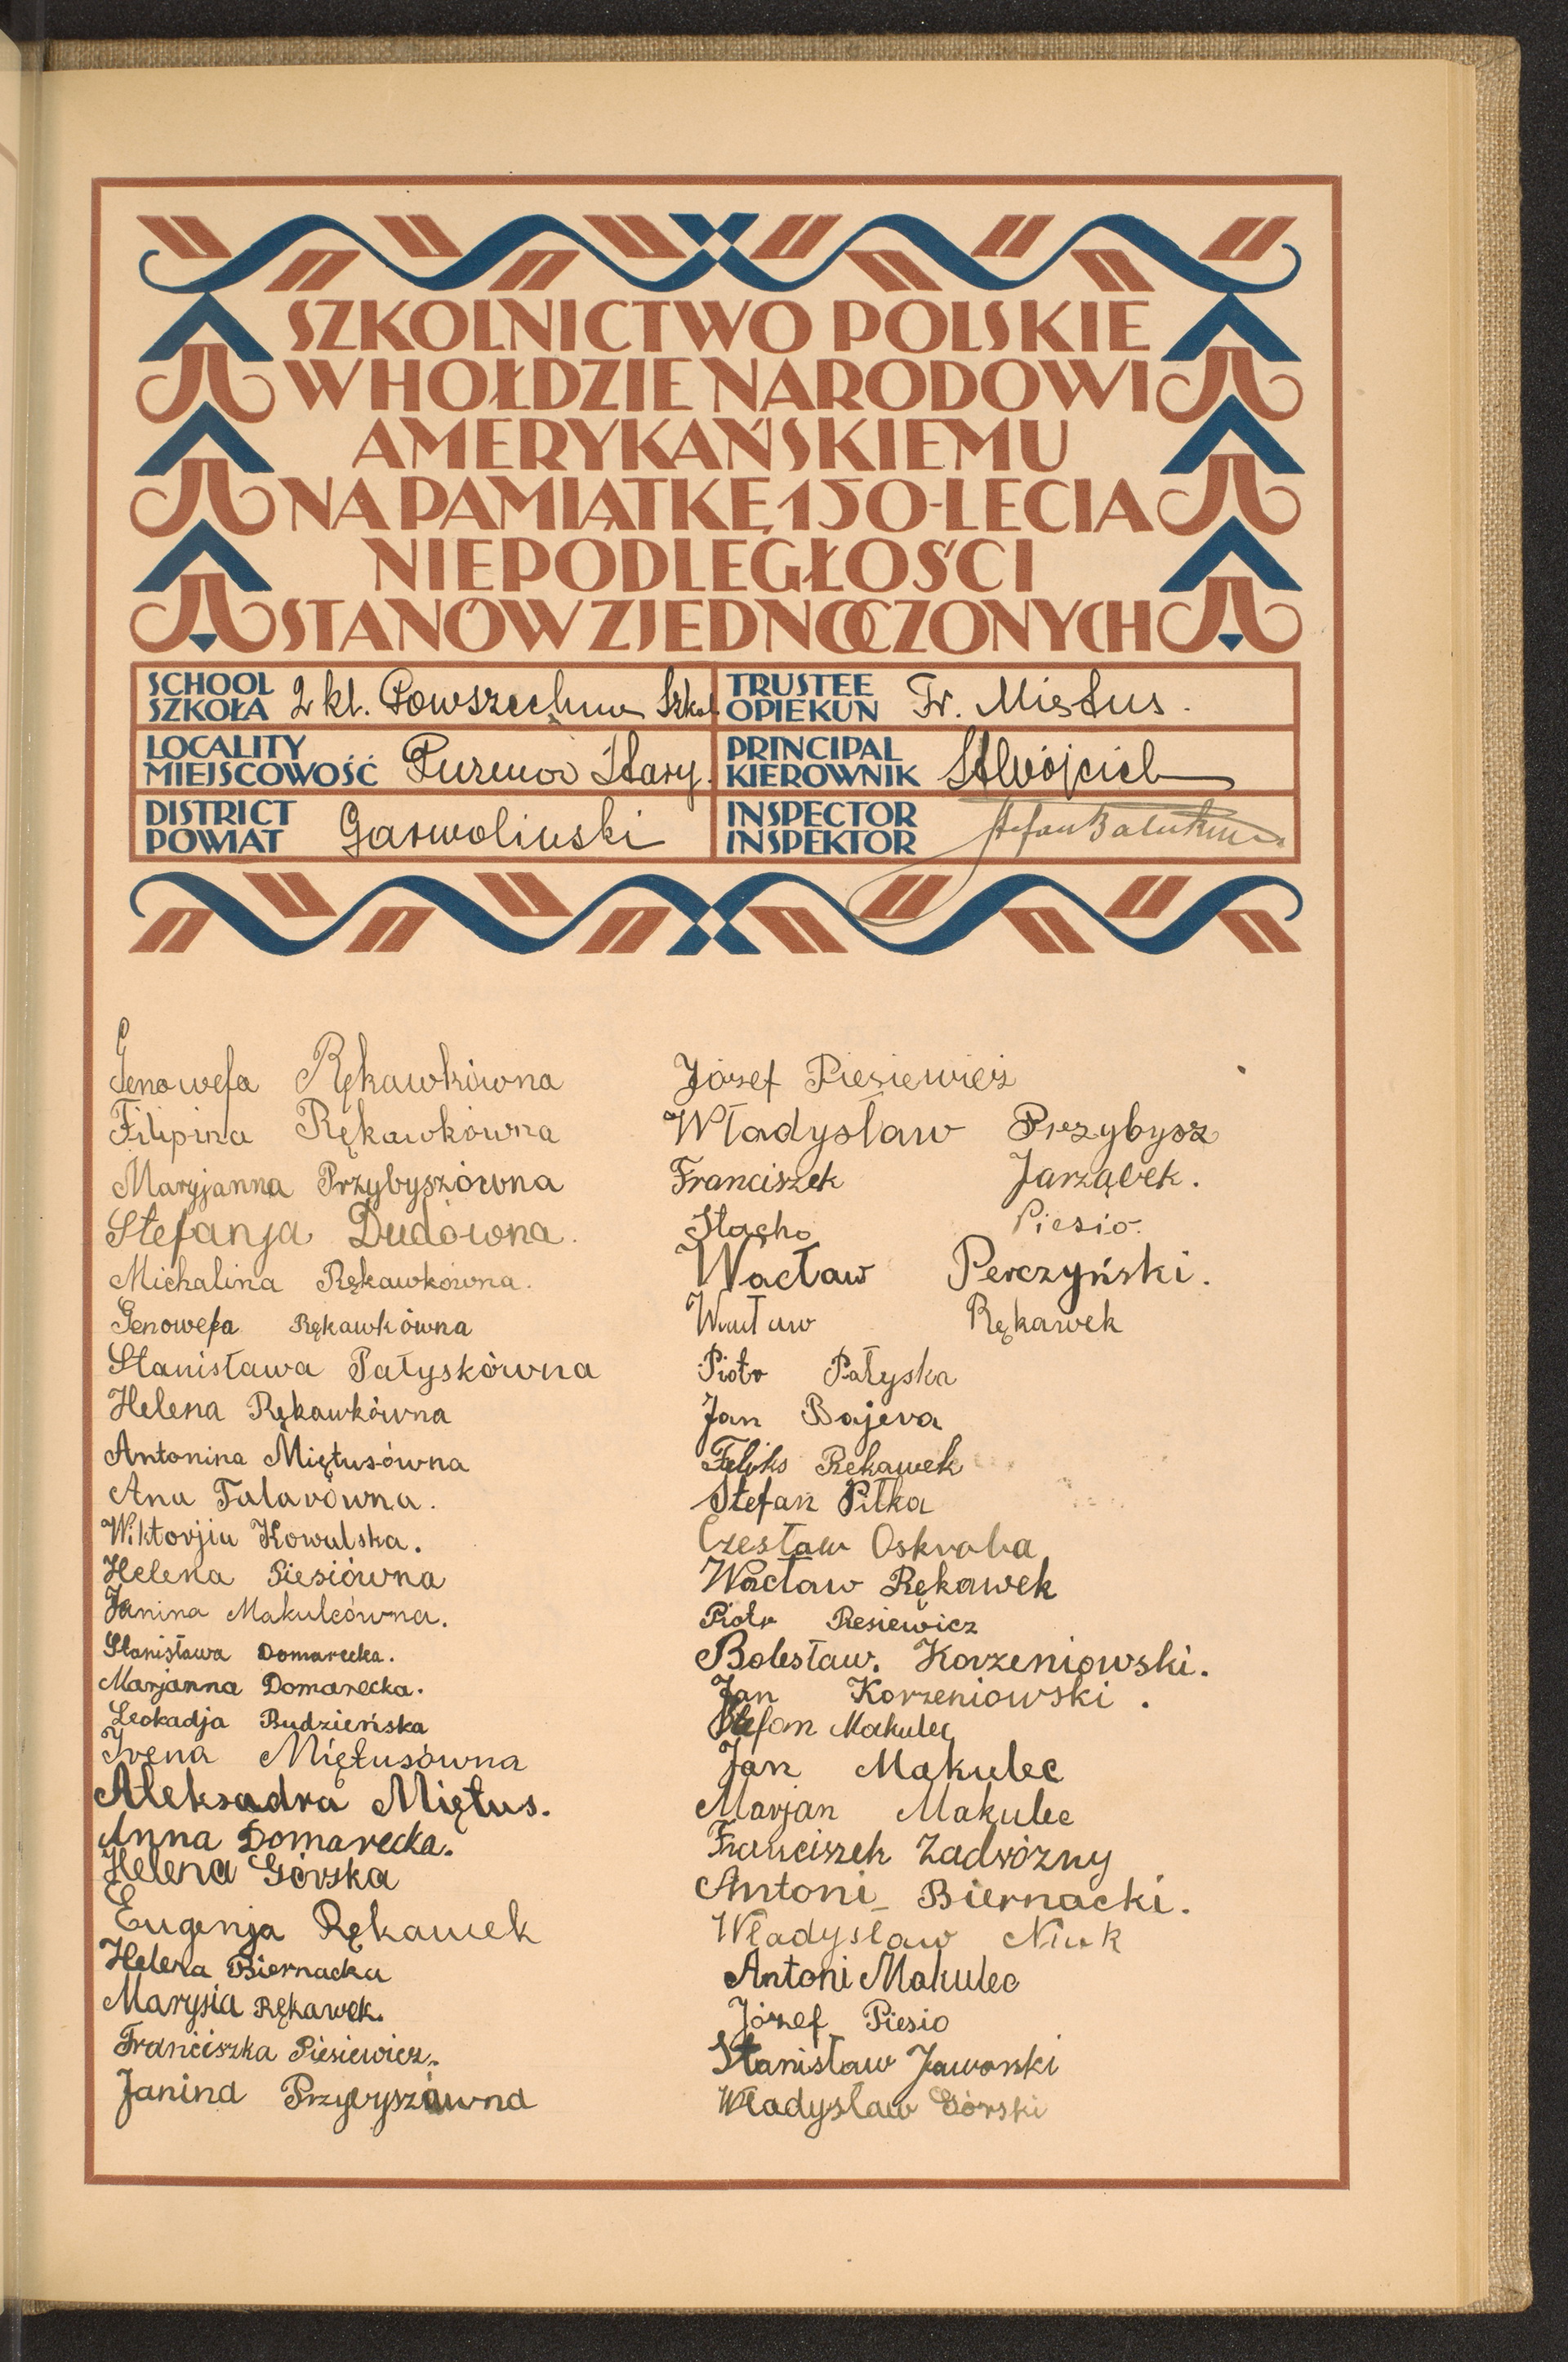 SZKOLNICTWO POLSKIE
W HOŁDZIE NARODOWI
AMERYKAŃSKIEMU
NA PAMIĄTKĘ 150-LECIA
NIEPODLEGŁOŚCI
STANÓW ZJEDNOCZONYCH
SCHOOL
SZKOŁA 2 kl. Powszechna Szkoł
TRUSTEE
OPIEKUN Fr. Miętus.
LOCALITY
MIEJSCOWOŚĆ Puznów Stary.
PRINCIPAL
KIEROWNIK StWójcick
DISTRICT
POWIAT Garwoliński
INSPECTOR
INSPEKTOR Stefan
Genowefa Rękawkówna
Filipina Rękawkówna
Maryjanna Przybyszówna
Stefanja Dudówna.
Michalina Rękawkówna.
Genowefa Rękawkówna
Stanisława Pałyskówna
Helena Rękawkówna
Antonina Miętusówna
Ana Talarówna.
Wiktorjia Kowalska.
Helena Piesiówna
Janina Makulcówna.
Stanisława Domarecka.
Marjanna Domarecka.
Leokadja Budzieńska
Irena Miętusówna
Aleksadra Miętus.
Anna Domarecka.
Helena Górska
Eugenja Rękawek
Helena Biernacka
Marysia Rękawek.
Franciszka Piesiewicz.
Janina Przybyszówna
Józef Piesiewicz
Władysław Przybysz
Franciszek Jarząbek.
Stacho Piesio.
Wacław Perczyński.
Wacław Rękawek
Piotr Pałyska
Jan Bajera
Feliks Rękawek
Stefan Piłka
Czesław Oskroba
Wacław Rękawek
Piotr Piesiewicz
Bolesław. Korzeniowski.
Jan Korzeniowski.
Stefan Makulec
Jan Makulec
Marjan Makulec
Franciszek Zadróżny
Antoni Biernacki.
Władysław
Antoni Makulec
Józef Piesio
Stanisław Jaworski
Władysław Górski